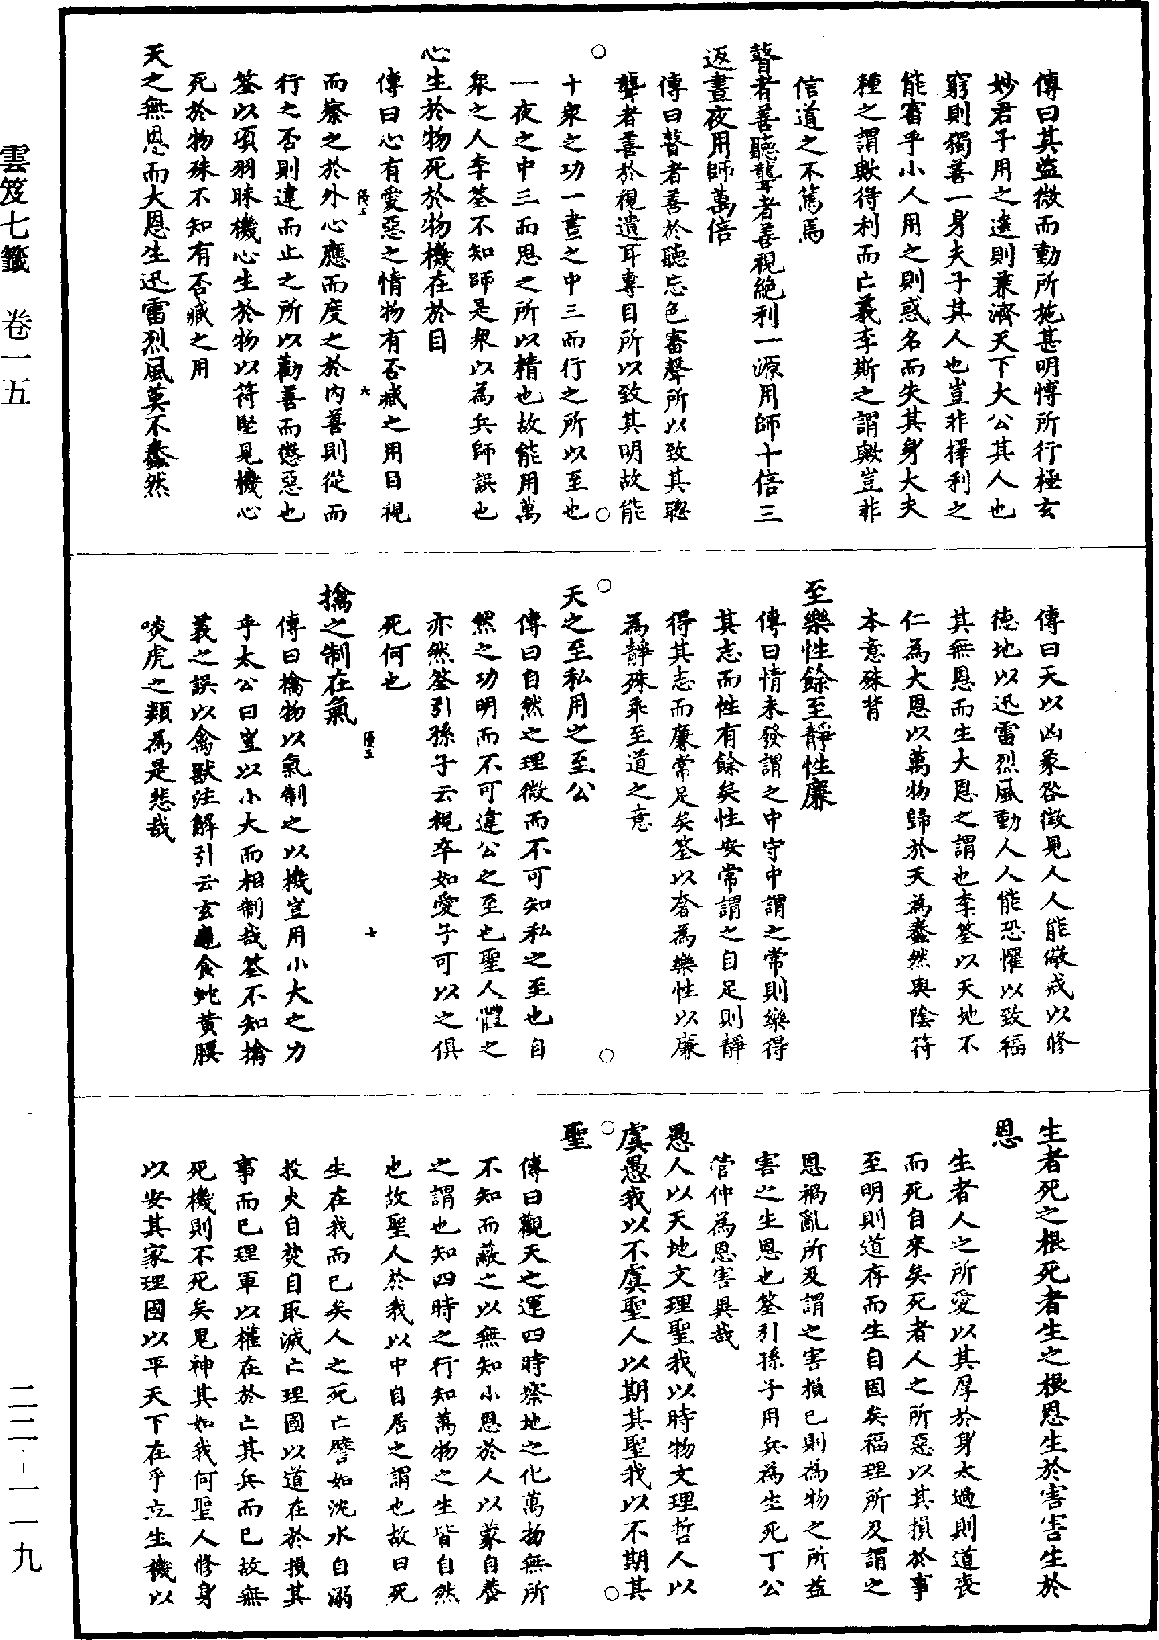 傳曰其盜微而動所施甚明慱所行極玄
妙君子用之達則兼濟天下大公其人也
窮則獨善一身夫子其人也豈非擇利之
能審乎小人用之則惑名而失其身大夫
種之謂歟得利而亡義李斯之謂歟豈非
信道之不篤焉
瞽者善聽聾者善視絶利一源用師十倍三
返晝夜用師萬倍
傳曰瞽者善於聽忘色審聲所以致其聰
聾者善於視遺耳專目所以致其明故能
十衆之功一晝之中三而行之所以至也
一夜之中三而思之所以精也故能用萬
衆之人李筌不知師是衆以為兵師誤也
心生於物死於物機在於目
傳曰心有愛惡之情物有否臧之用目視
而察之於外心應而度之於内善則從而
行之否則違而止之所以勸善而懲惡也
筌以項羽昧機心生於物以符堅見機心
死於物殊不知有否臧之用
天之無恩而大恩生迅雷烈風莫不蠢然
傳曰天以凶象咎徵見人人能儆戒以修
德地以迅雷烈風動人人能恐懼以致福
其無恩而生大恩之謂也李筌以天地不
仁為大恩以萬物歸於天為蠢然與陰符
本意殊背
至樂性餘至靜性廉
傳曰情未發謂之中守中謂之常則樂得
其志而性有餘矣性安常謂之自足則靜
得其志而廉常足矣筌以奢為樂性以廉
為靜殊乖至道之意
天之至私用之至公
傳曰自然之理微而不可知私之至也自
然之功明而不可違公之至也聖人體之
亦然筌引孫子云視卒如愛子可以之俱
死何也
擒之制在氣
傳曰擒物以氣制之以機豈用小大之力
乎太公曰豈以小大而相制哉筌不知擒
義之誤以禽獸注解引云玄龜食蛇黄腰
啖虎之類為是悲哉
生者死之根死者生之根恩生於害害生於
恩
生者人之所愛以其厚於身太過則道喪
而死自來矣死者人之所惡以其損於事
至明則道存而生自固矣福理所及謂之
恩禍亂所及謂之害損己則為物之所益
害之生恩也筌引孫子用兵為生死丁公
管仲為恩害異哉
愚人以天地文理聖我以時物文理哲人以
虞愚我以不虞聖人以期其聖我以不期其
聖
傳曰觀天之運四時察地之化萬物無所
不知而蔽之以無知小恩於人以蒙自養
之謂也知四時之行知萬物之生皆自然
也故聖人於我以中自居之謂也故曰死
生在我而已矣人之死亡譬如沈水自溺
投火自焚自取滅亡理國以道在於損其
事而已理軍以權在於亡其兵而已故無
死機則不死矣鬼神其如我何聖人修身
以安其家理國以平天下在乎立生機以
雲笈七籤　卷一五
二二-一一九